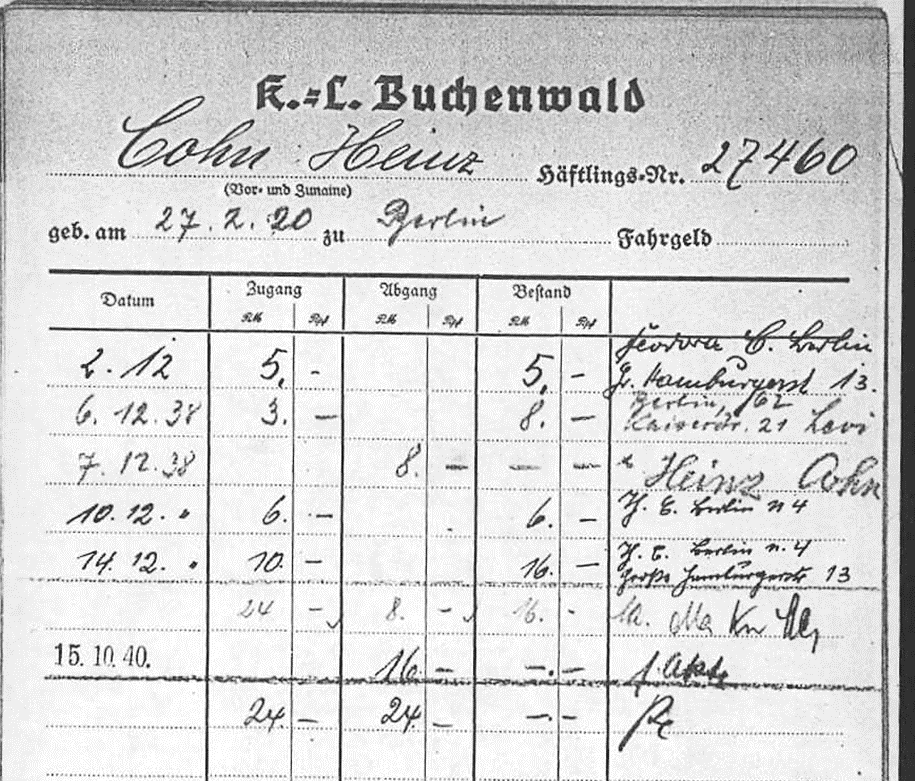 K.=L. Buchenwald
Cohn Heinz Häftlings=Nr. 27460
(Vor= und Zuname)
geb. am 27.2.20 zu Berlin Fahrgeld
Datum Zugang Abgang Bestand
RM Rpf RM Rpf RM Rpf
Feodora C. Berlin
2. 12 5, - 5, - Gr. Hamburgerst 13.
Berlin,
6. 12. 38 3. - 8. - Kaiserstr. 21 Levi
7. 12. 38 8. - - - Heinz Cohn
10. 12. " 6. - 6. - C. Berlin n 4
C. Berlin n. 4
14. 12. " 10. - 16. - Große Hamburgerstr 13
24 - 8. - 16. -
15. 10. 40. 16. - -. -
24. - 24. - - -